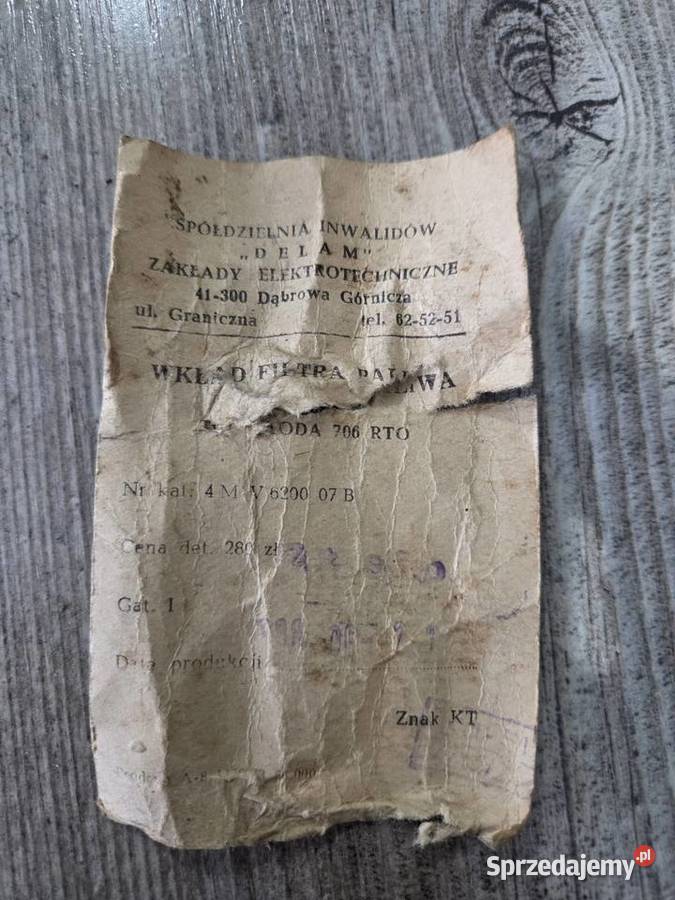 SPÓŁDZIELNIA INWALIDÓW
„DELAM"
ZAKŁADY ELEKTROTECHNICZNE
41-300 Dąbrowa Górnicza
ul. Graniczna tel. 62-52-51
WKŁAD FILTRA PALIWA
706 RTO
Nr kat. 4 M V 6200 07 B
Cena det. 280 zł
Gat. I
Data produkcji
Znak KT
Sprzedajemy.pl